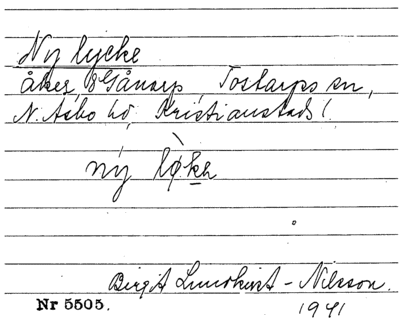 Ny lycke
åker, 8 Gånarp, Tostarps sn,
N. Åsbo hd, Kristianstads l.
ný lø̀kə
Birgit Lundkvist - Nilsson.
Nr 5505. 1941